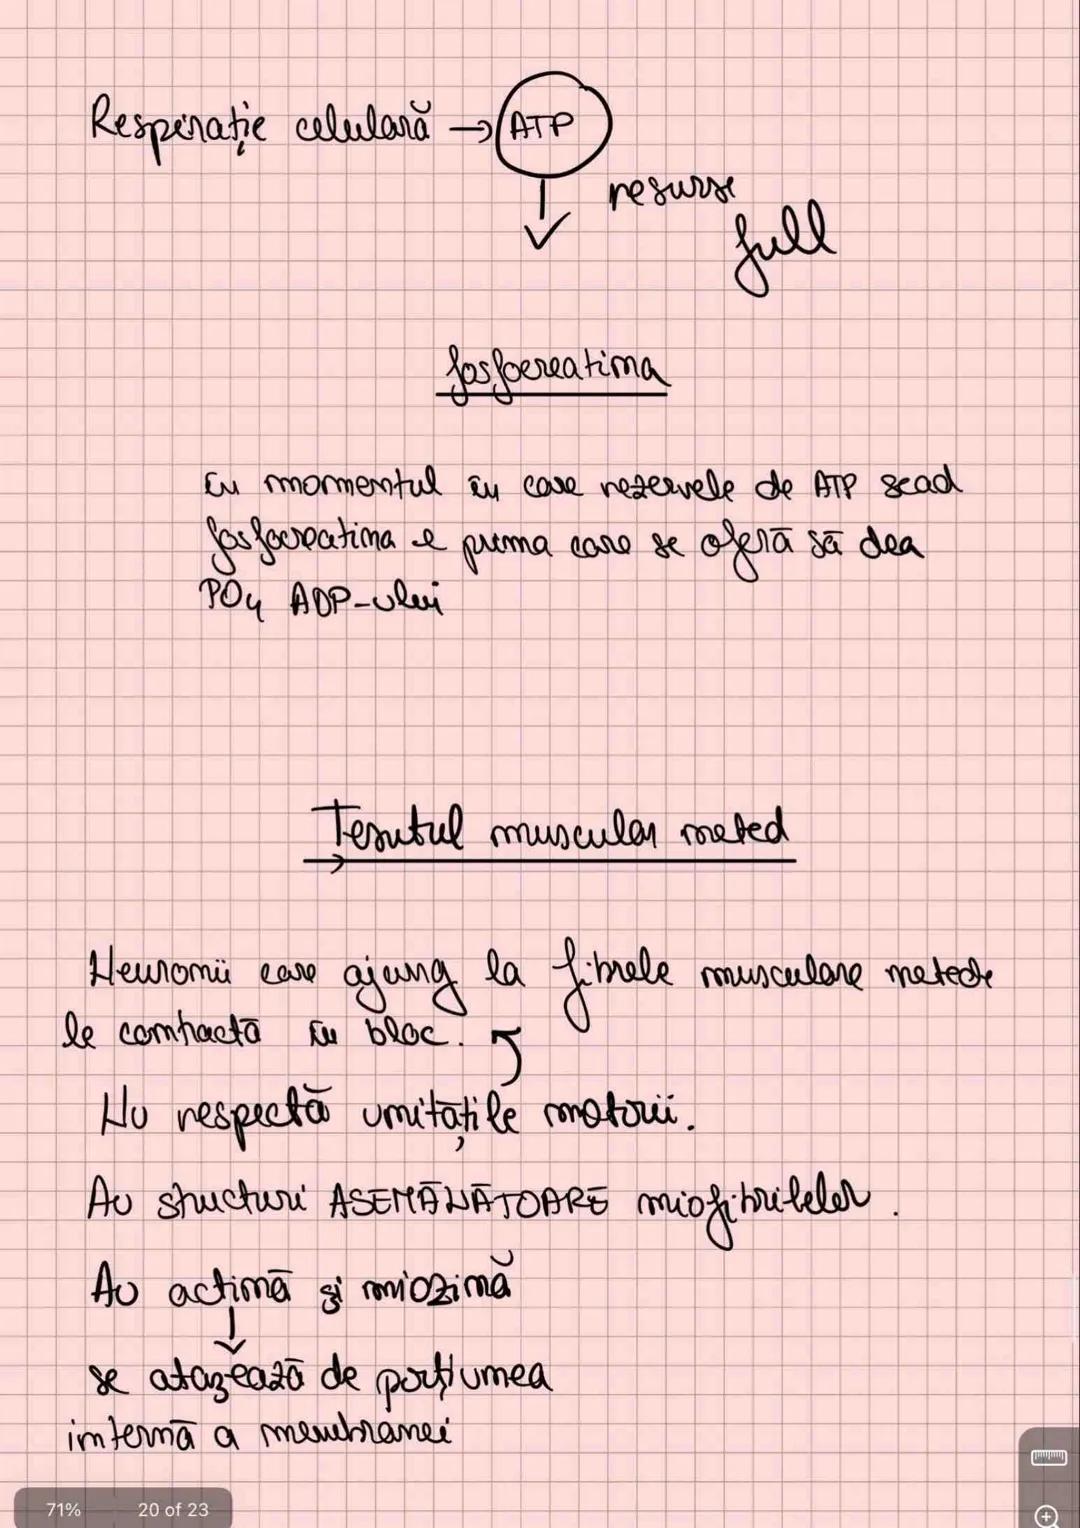 Respirație celulară → ATP
resurse
full
fosfocreatina
În momentul în care rezervele de ATP scad
fosfocreatina e prima care se oferă să dea
PO4 ADP-ului
Țesutul muscular neted
Neuronii care ajung la fibrele musculare netede
le contractă în bloc.
Nu respectă unitățile motorii.
Au structuri ASEMĂNĂTOARE miofibrilelor.
Au actină și miozină
se atașează de porțiunea
internă a membranei
71% 20 of 23